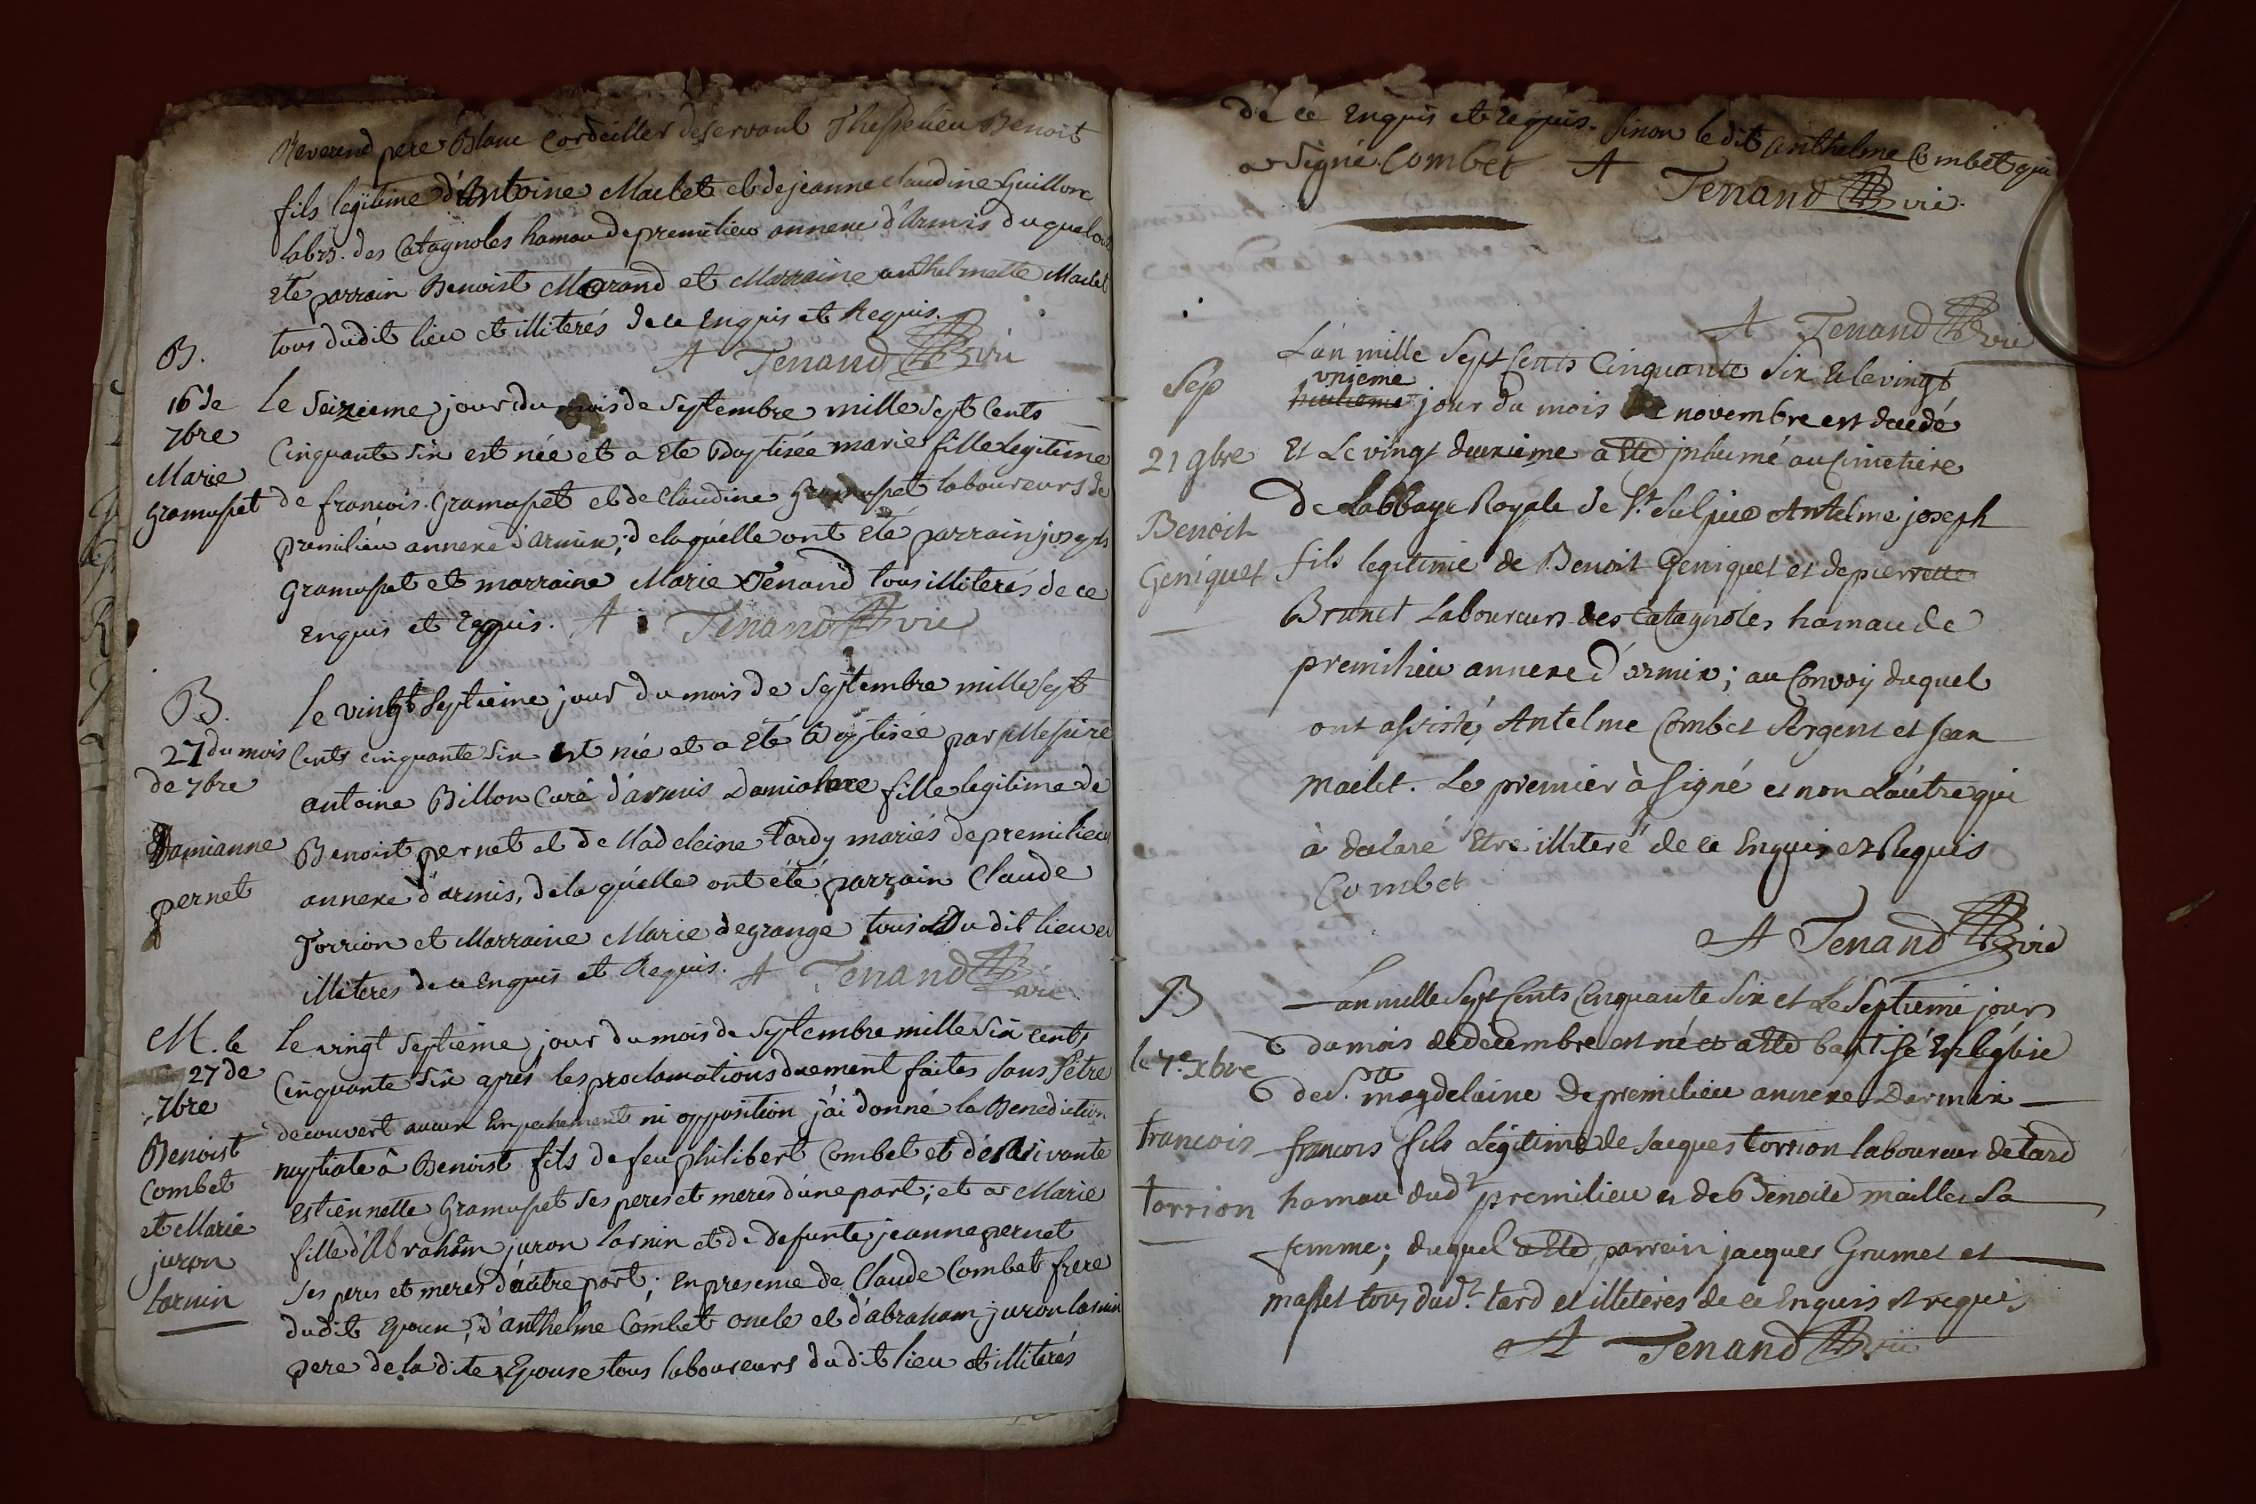 Reverend pere Blanc Cordeiller deservant Thesselieu Benoit
fils legitime d'Antoine Maclet et de jeanne claudine Guillon
labrs. des Catagnoles hamau de premilieu annexe d'Armis duquel ont
ete parrain Benoist Morand et Marraine anthelmette Maclet
tous dudit lieu et illiterés de ce Enquis et Requis.
A Tenand vic
B.
16 de
7bre
Marie
Gramuset
le Seizieme jour du mois de Septembre mille Sept Cents
Cinquante Six est née et a Ete Baptisée marie fille legitime
de francois Gramuset et de Claudine Gramuset laboureurs de
premilieu annexe d'armix; de laquelle ont eté parrain joseph
Gramuset et marraine Marie Tenand tous illiterés de ce
Enquis et Requis. A Tenand vic
B.
27 du mois
de 7bre
Damianne
pernet
le vingt Septieme jour du mois de Septembre mille Sept
Cents cinquante Six est née et a Eté Baptisée par Messire
antoine Billon Curé d'armis Damianne fille legitime de
Benoist pernet et de Madeleine tardy mariés de premilieu
annexe d'armis, de laquelle ont été parrain Claude
Torrion et Marraine Marie degrange tous Du dit lieu et
illiteres de ce Enquis et Requis. A Tenand vic
M. le
27 de
7bre
Benoist
Combet
et Marie
juron
larnin
le vingt Septieme jour du mois de Septembre mille Six cents
Cinquante Six aprés les proclamations duement faites Sans S'etre
decouvert aucun Empechement ni opposition j'ai donné la Benediction
nuptiale â Benoist fils de feu philibert Combet et de vivante
Estiennette Gramuset Ses peres et meres d'une part; et a Marie
fille d'Abraham juron larnin et de defunte jeanne pernet
Ses peres et meres d'autre part; En presence de Claude Combet frere
dudit Epoux, d'anthelme Combet oncle et d'abraham juron larnin
pere de la dite Epouse tous laboureurs du dit lieu et illiterés
de ce Enquis et requis. Sinon le dit Anthelme Combet qui
a Signé. Combet A Tenand vic.
A Tenand vic
Sep
21 9bre
Benoit
Geniquet
L'an mille Sept Cents Cinquante Six Et le vingt
vnieme
huitieme jour du mois de novembre est decedé
Et Le vingt deuxieme a Eté jnhumé au Cimetiere
de Labbaye Royale de St. Sulpice Antelme joseph
fils legitime de Benoit Geniquet et de pierrette
Brunet Laboureurs des Catagnoles hamau de
premilieu annexe d'armix; au Convoy duquel
ont assisté Antelme Combet Sergent et Jean
Maclet. Le premier à Signé et non L'autre qui
à declaré Etre illiteré de ce Enquis et Requis
Combet
A Tenand vic
B
le 7e. Xbre
francois
torrion
L'an mille Sept Cents Cinquante Six et Le Septieme jour
du mois de decembre est né et a Eté baptisé En l'église
de Ste. magdelaine de premilieu annexe Darmix
francois fils Légitime de Jacques torrion laboureur de tard
hamau dudt. premilieu et de Benoite maillet Sa
femme; duquel a Eté parrein jacques Grumet et
masset tous dudt. tard et illetérés de ce Enquis et requis
A Tenand vic